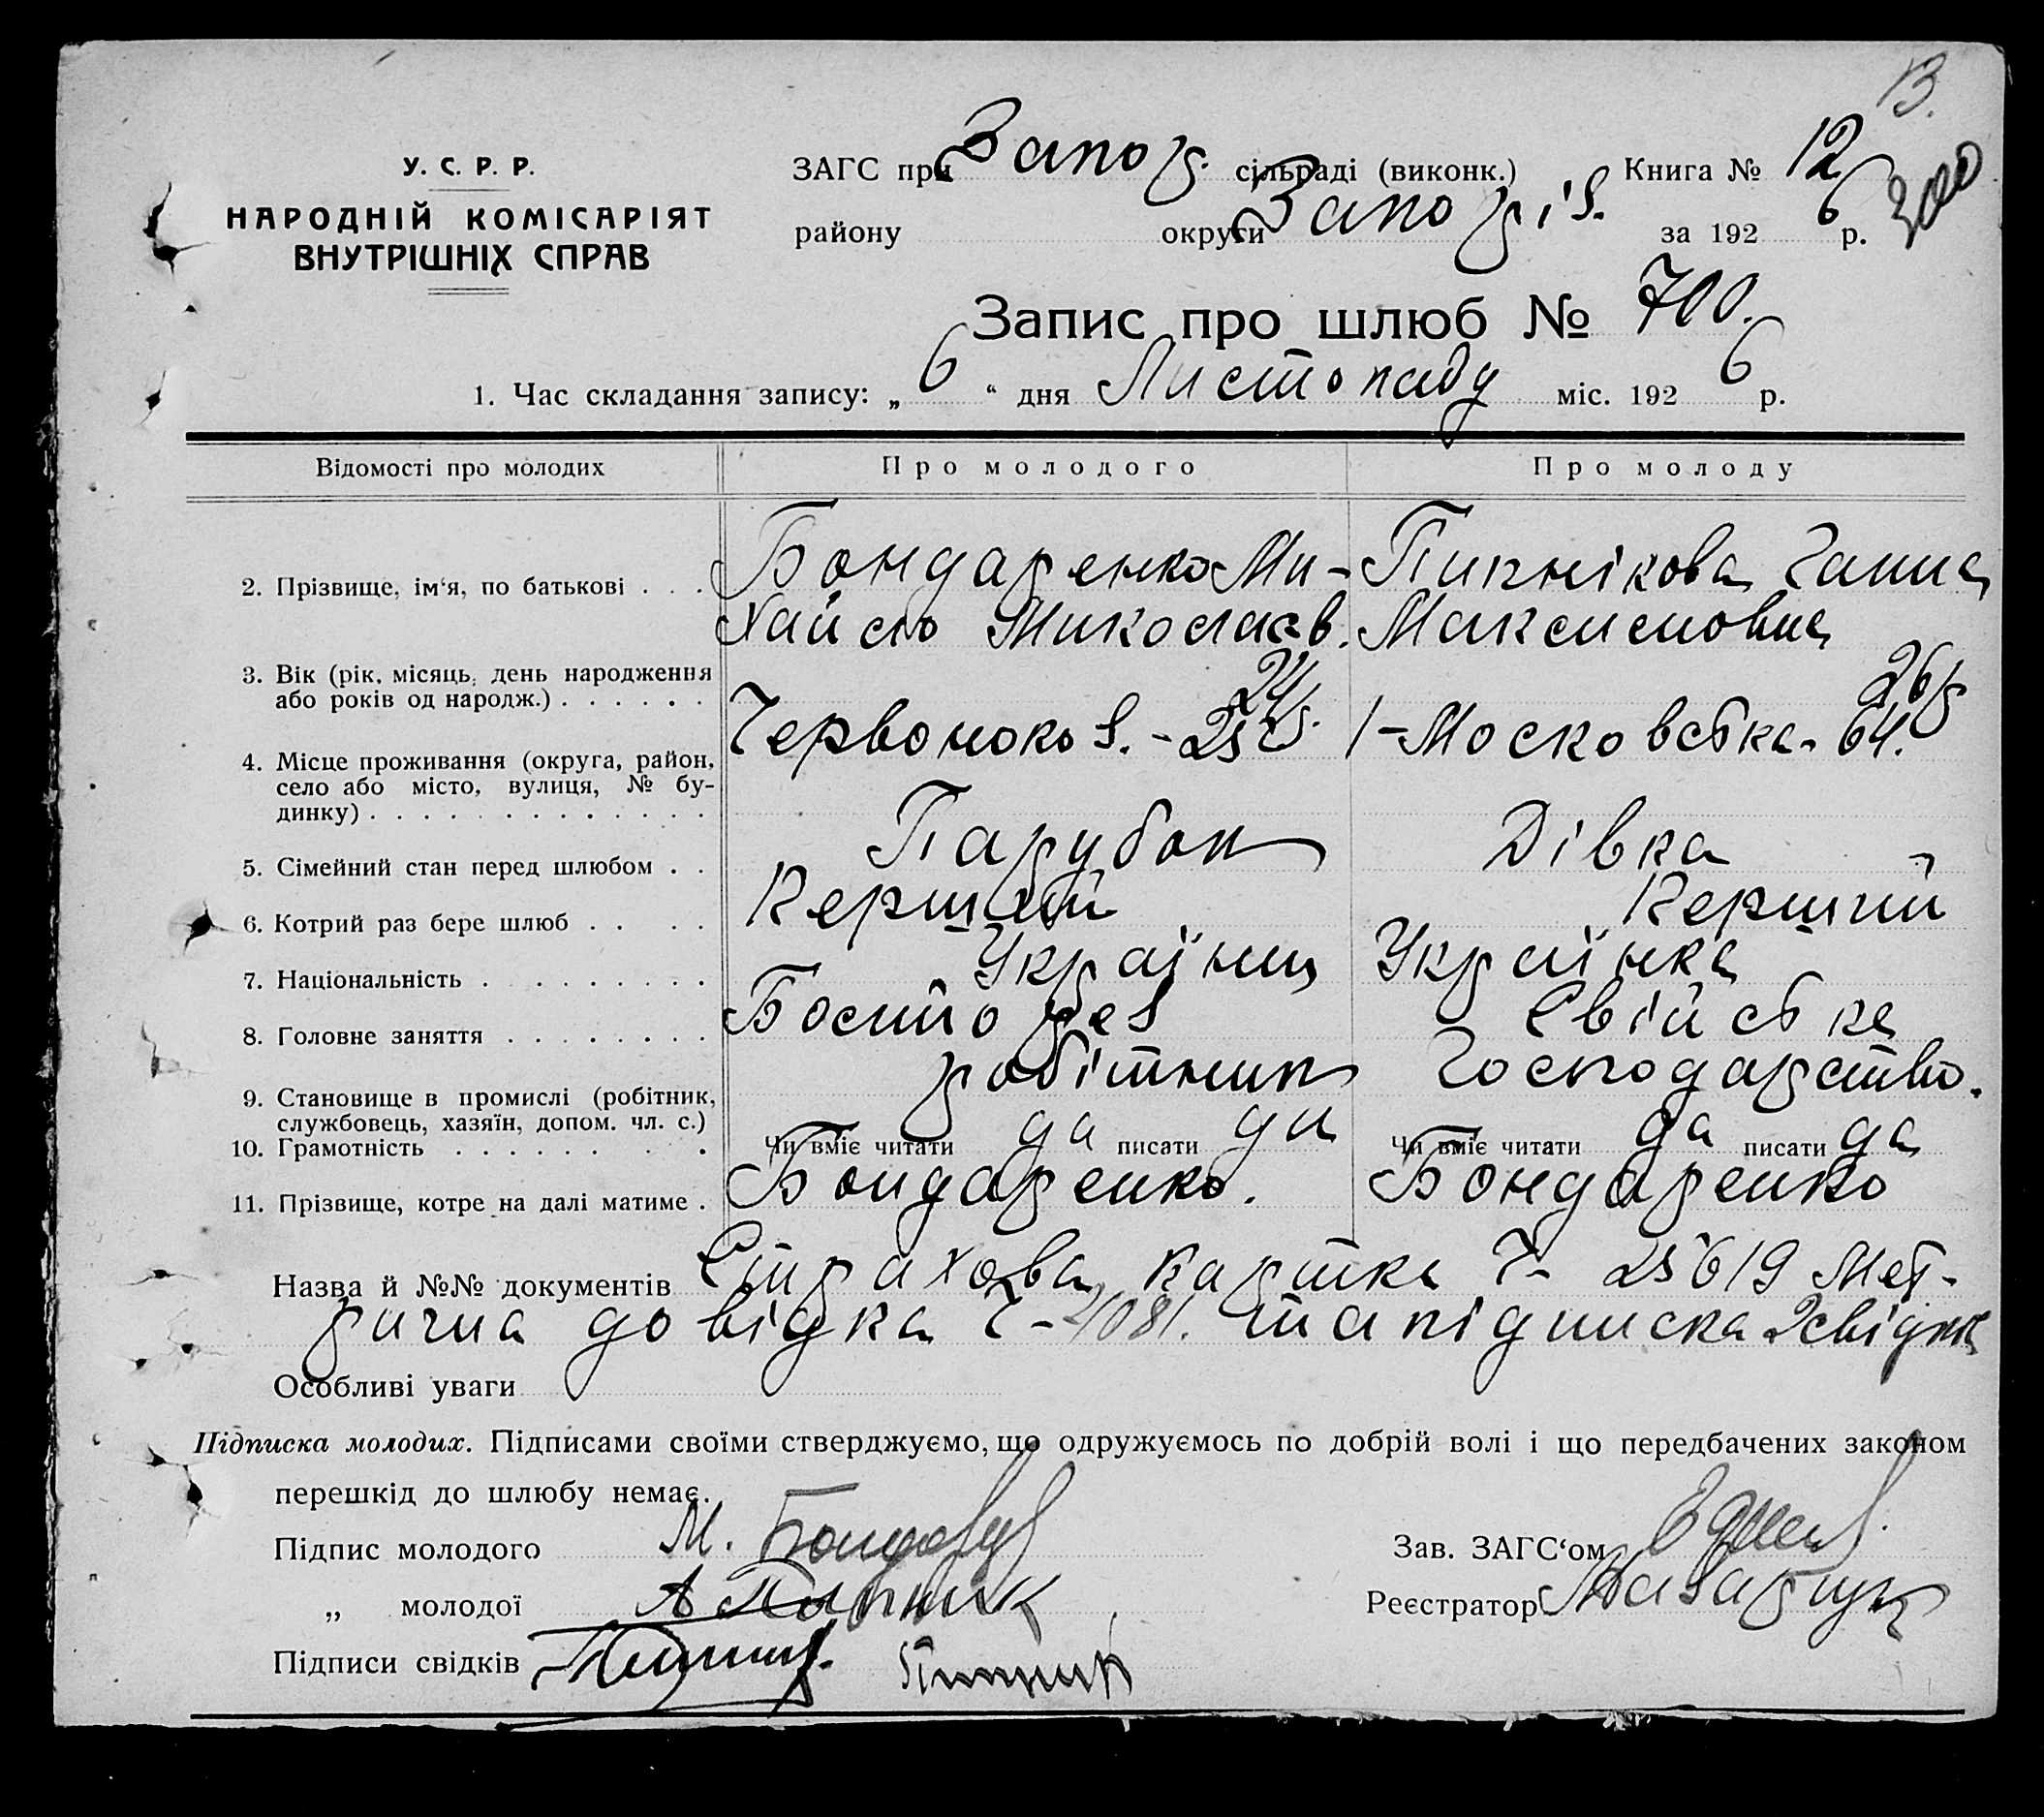 13.
У. С. Р. Р.
НАРОДНІЙ КОМІСАРІЯТ
ВНУТРІШНІХ СПРАВ
ЗАГС при Запор. сільраді (виконк.) Книга № 12
району округи Запоріз. за 1926 р.
Запис про шлюб № 700.
1. Час складання запису: „6“ дня Листопаду міс. 1926 р.
Відомості про молодих Про молодого Про молоду
2. Прізвище, ім‘я, по батькові . . . Бондаренко Ми- Пипнікова Ганна
хайло Миколаєв. Максимовна
3. Вік (рік, місяць, день народження
або років од народж.) . . . . . . 24 р. 26 р
4. Місце проживання (округа, район,
село або місто, вулиця, № бу-
динку) . . . . . . . . . . . . . Червонокоз. - 25 1-Московська. 64.
5. Сімейний стан перед шлюбом . . Парубок Дівка
6. Котрий раз бере шлюб . . . . Перший Перший
7. Національність . . . . . . . . . Українец Українка
8. Головне заняття . . . . . . . . Свійська
9. Становище в промислі (робітник,
службовець, хазяїн, допом. чл. с.) робітник Господарство.
10. Грамотність . . . . . . . . . Чи вміє читати да писати да Чи вміє читати да писати да
11. Прізвище, котре на далі матиме . Бондаренко. Бондаренко
Назва й №№ документів Страхова картка Ч- 25619 Мет-
рична довідка Ч- 4081. та підписка 2 свідків
Особливі уваги
Підписка молодих. Підписами своїми стверджуємо, що одружуємось по добрій волі і що передбачених законом
перешкід до шлюбу немає.
Підпис молодого М. Бондар Зав. ЗАГС‘ом
„ молодої А Пипник Реєстратор
Підписи свідків Пипник